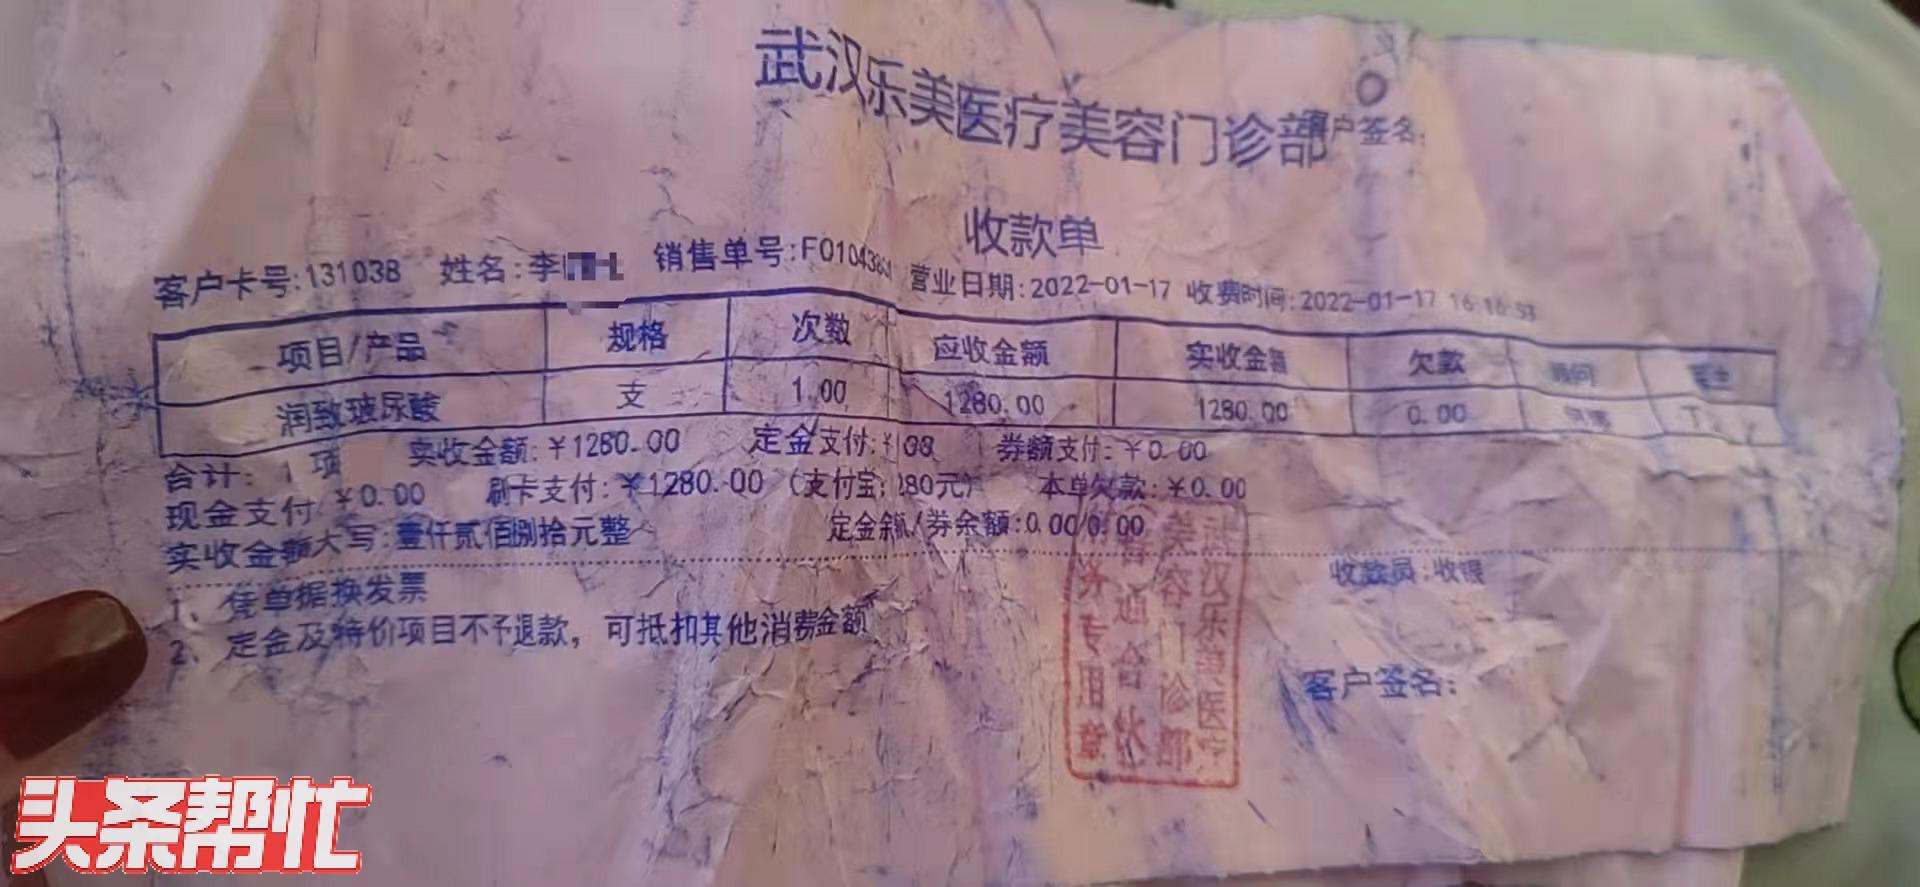 武汉乐美医疗美容门诊部
客户签名:
收款单
客户卡号:131038 姓名:李 销售单号:F01043 营业日期:2022-01-17 收费时间:2022-01-17 16:16:53
项目/产品 规格 次数 应收金额 实收金额 欠款 顾问
润致玻尿酸 支 1.00 1280.00 1280.00 0.00
合计: 1 项 实收金额:￥1280.00 定金支付:￥ 00 券额支付:￥0.00
现金支付 ￥0.00 刷卡支付:￥1280.00 (支付宝: 280元) 本单欠款:￥0.00
实收金额大写:壹仟贰佰捌拾元整 定金余额/券余额:0.00/0.00
收款员:收银
1、凭单据换发票
2、定金及特价项目不予退款，可抵扣其他消费金额
客户签名:
武汉乐美医疗
美容门诊部
普通合伙
务专用章
头条帮忙